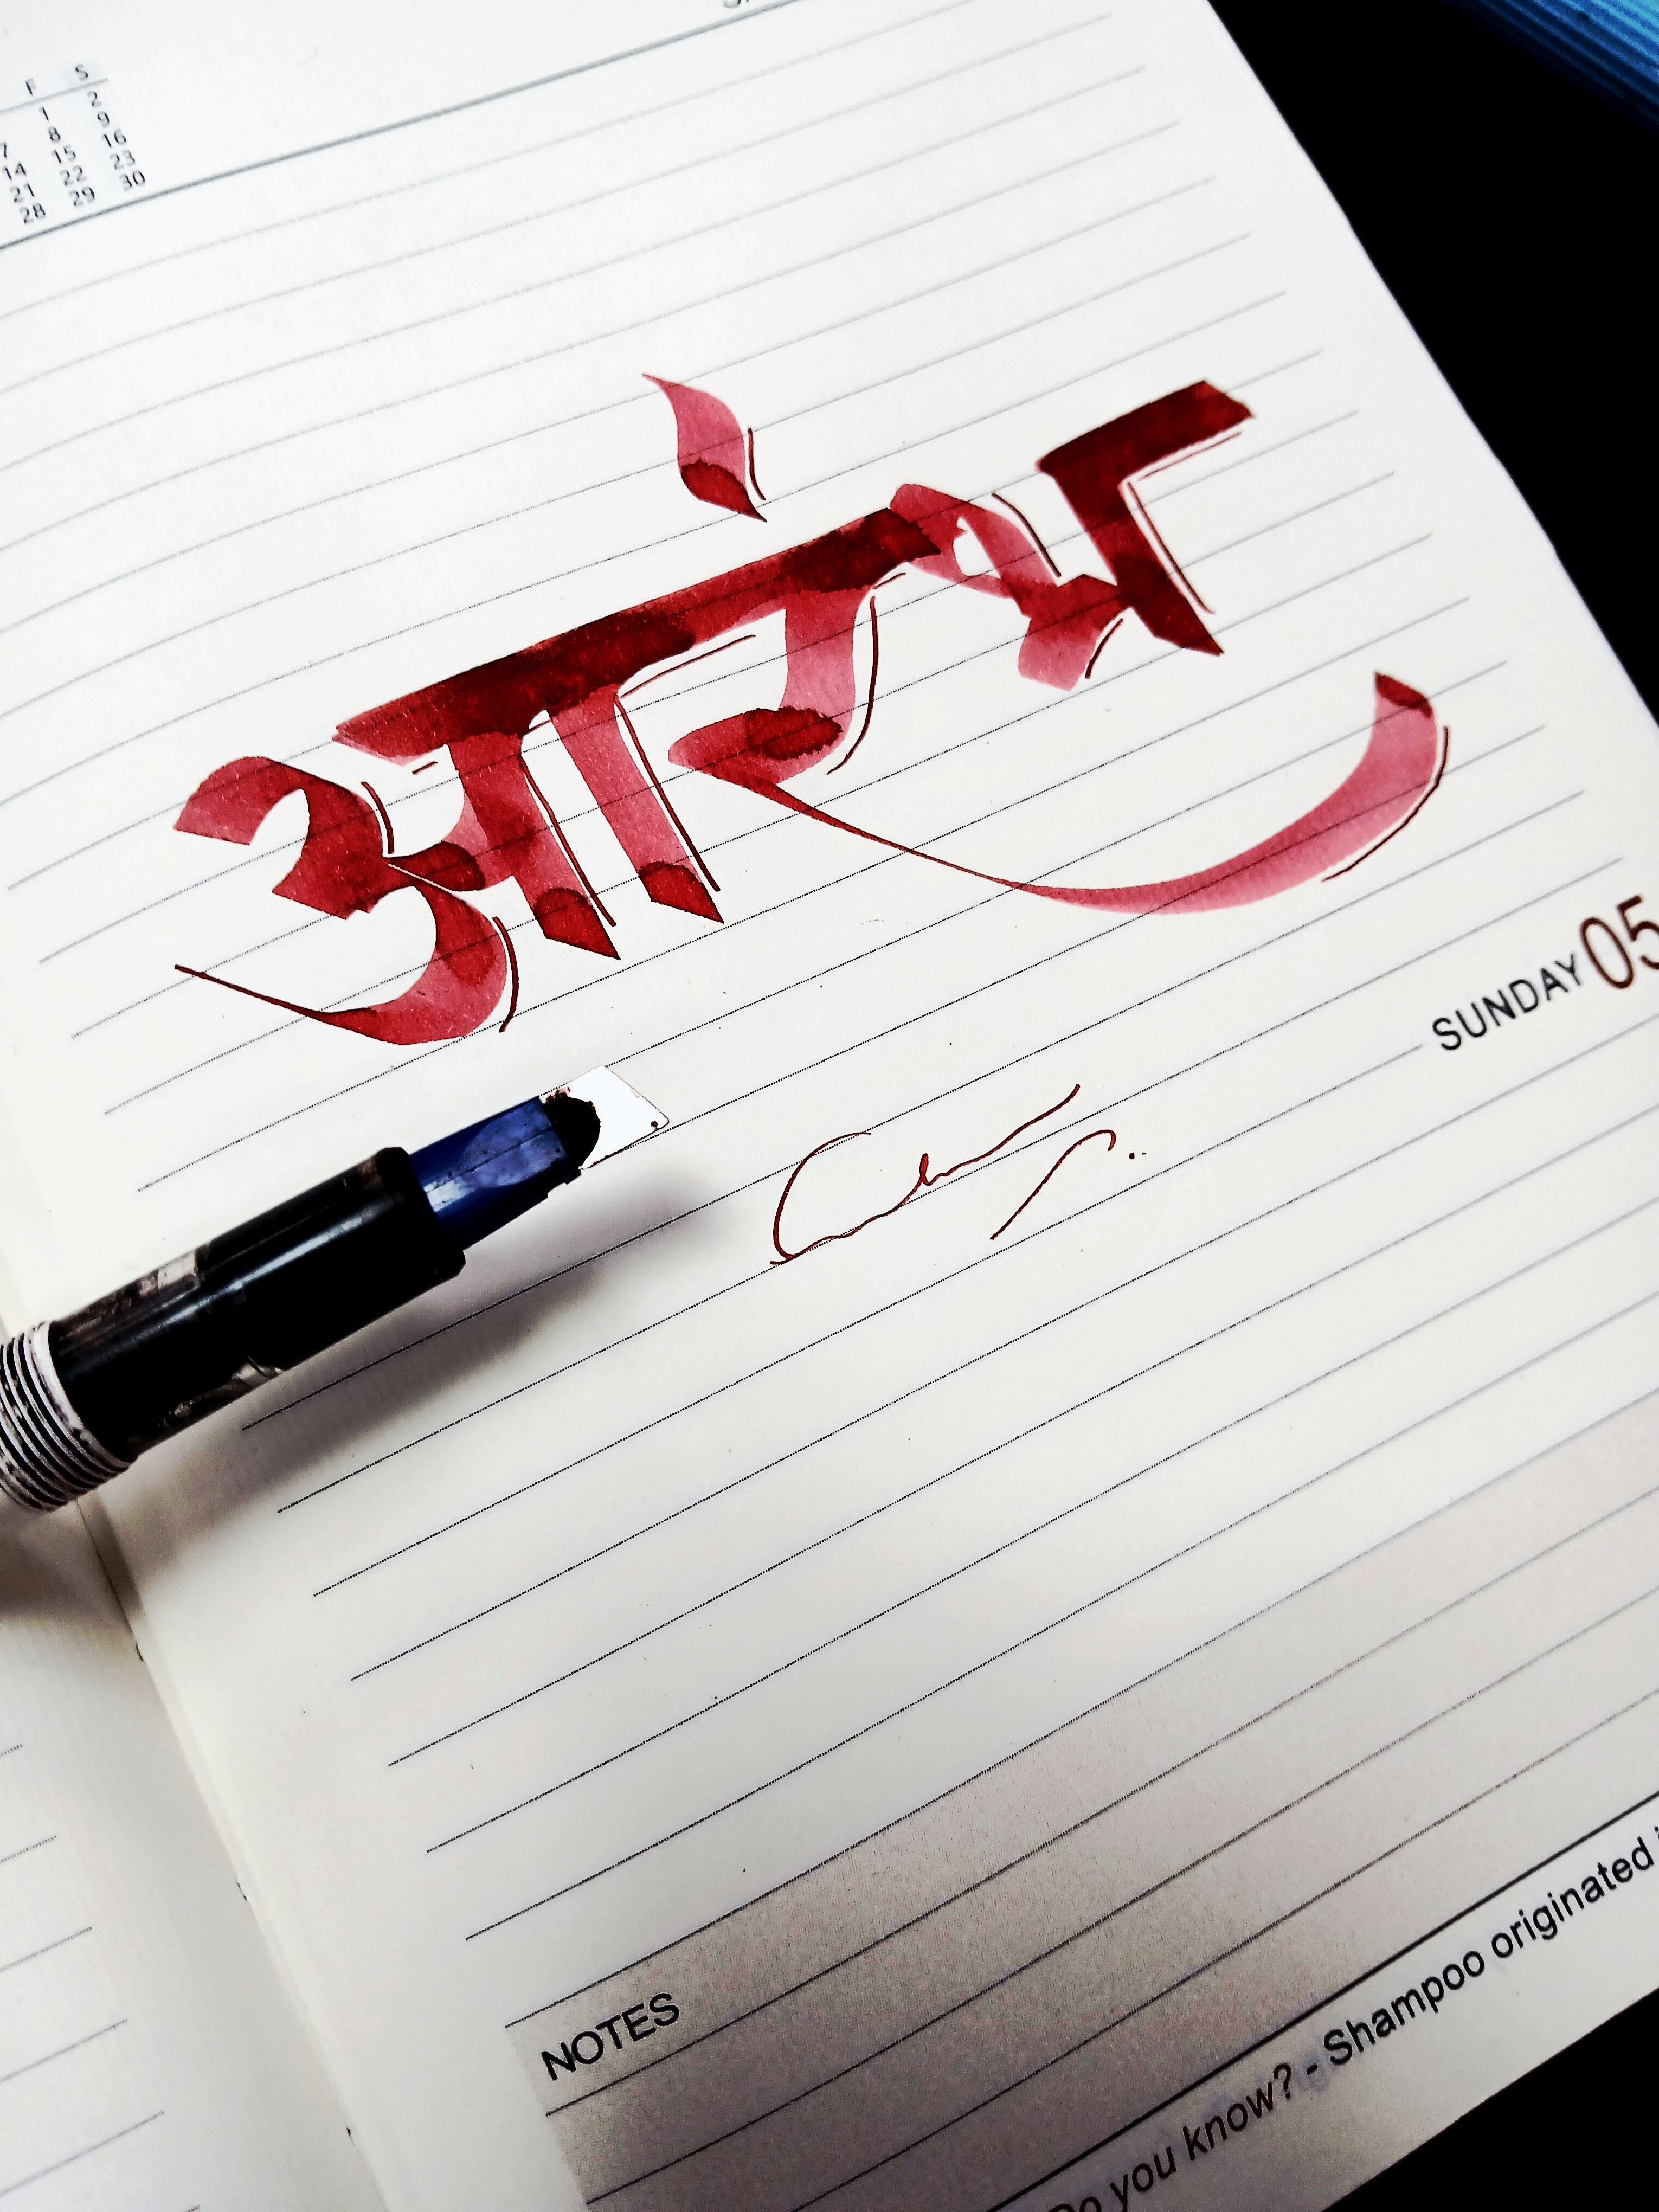 F S
1 2
8 9
7 15 16
14 22 23
21 29 30
28
आरंभ
SUNDAY 05
NOTES
Do you know? - Shampoo originated